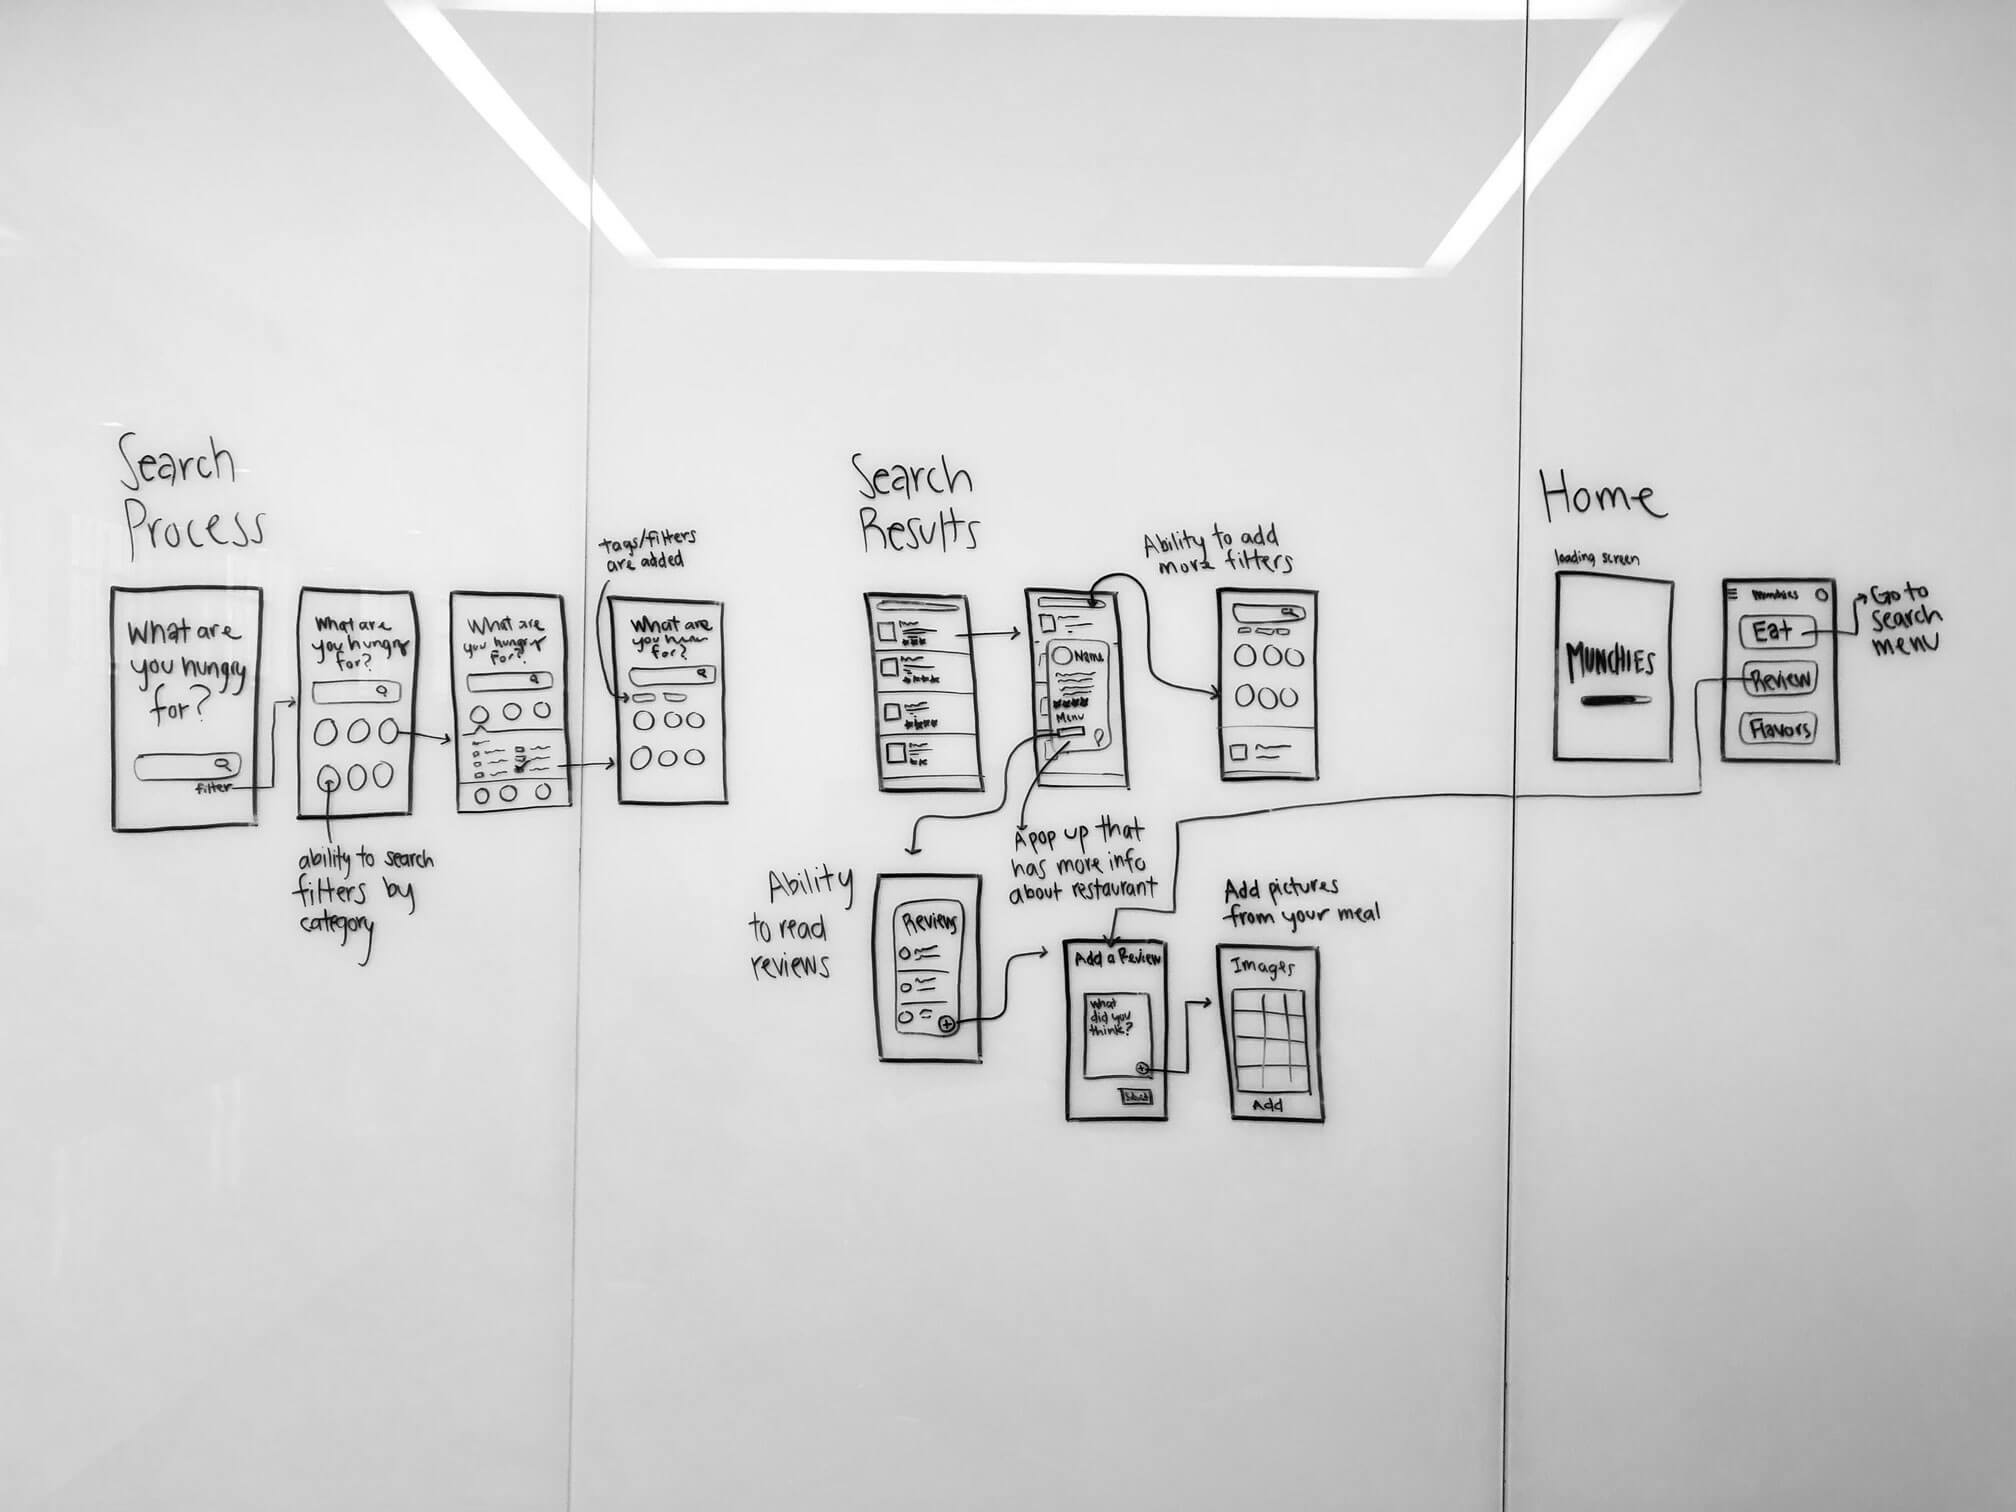 Search
Process
What are
you hungry
for?
filter
What are
you hungry
for?
ability to search
filters by
category
What are
you hungry
for?
tags/filters
are added
What are
for?
Search
Results
Name
Menu
A pop up that
has more info
about restaurant
Ability to add
more filters
Ability
to read
reviews
Reviews
Add a Review
What
did you
think?
Add pictures
from your meal
Images
Add
Home
loading screen
MUNCHIES
Munchies
Eat
Review
Flavors
Go to
search
menu